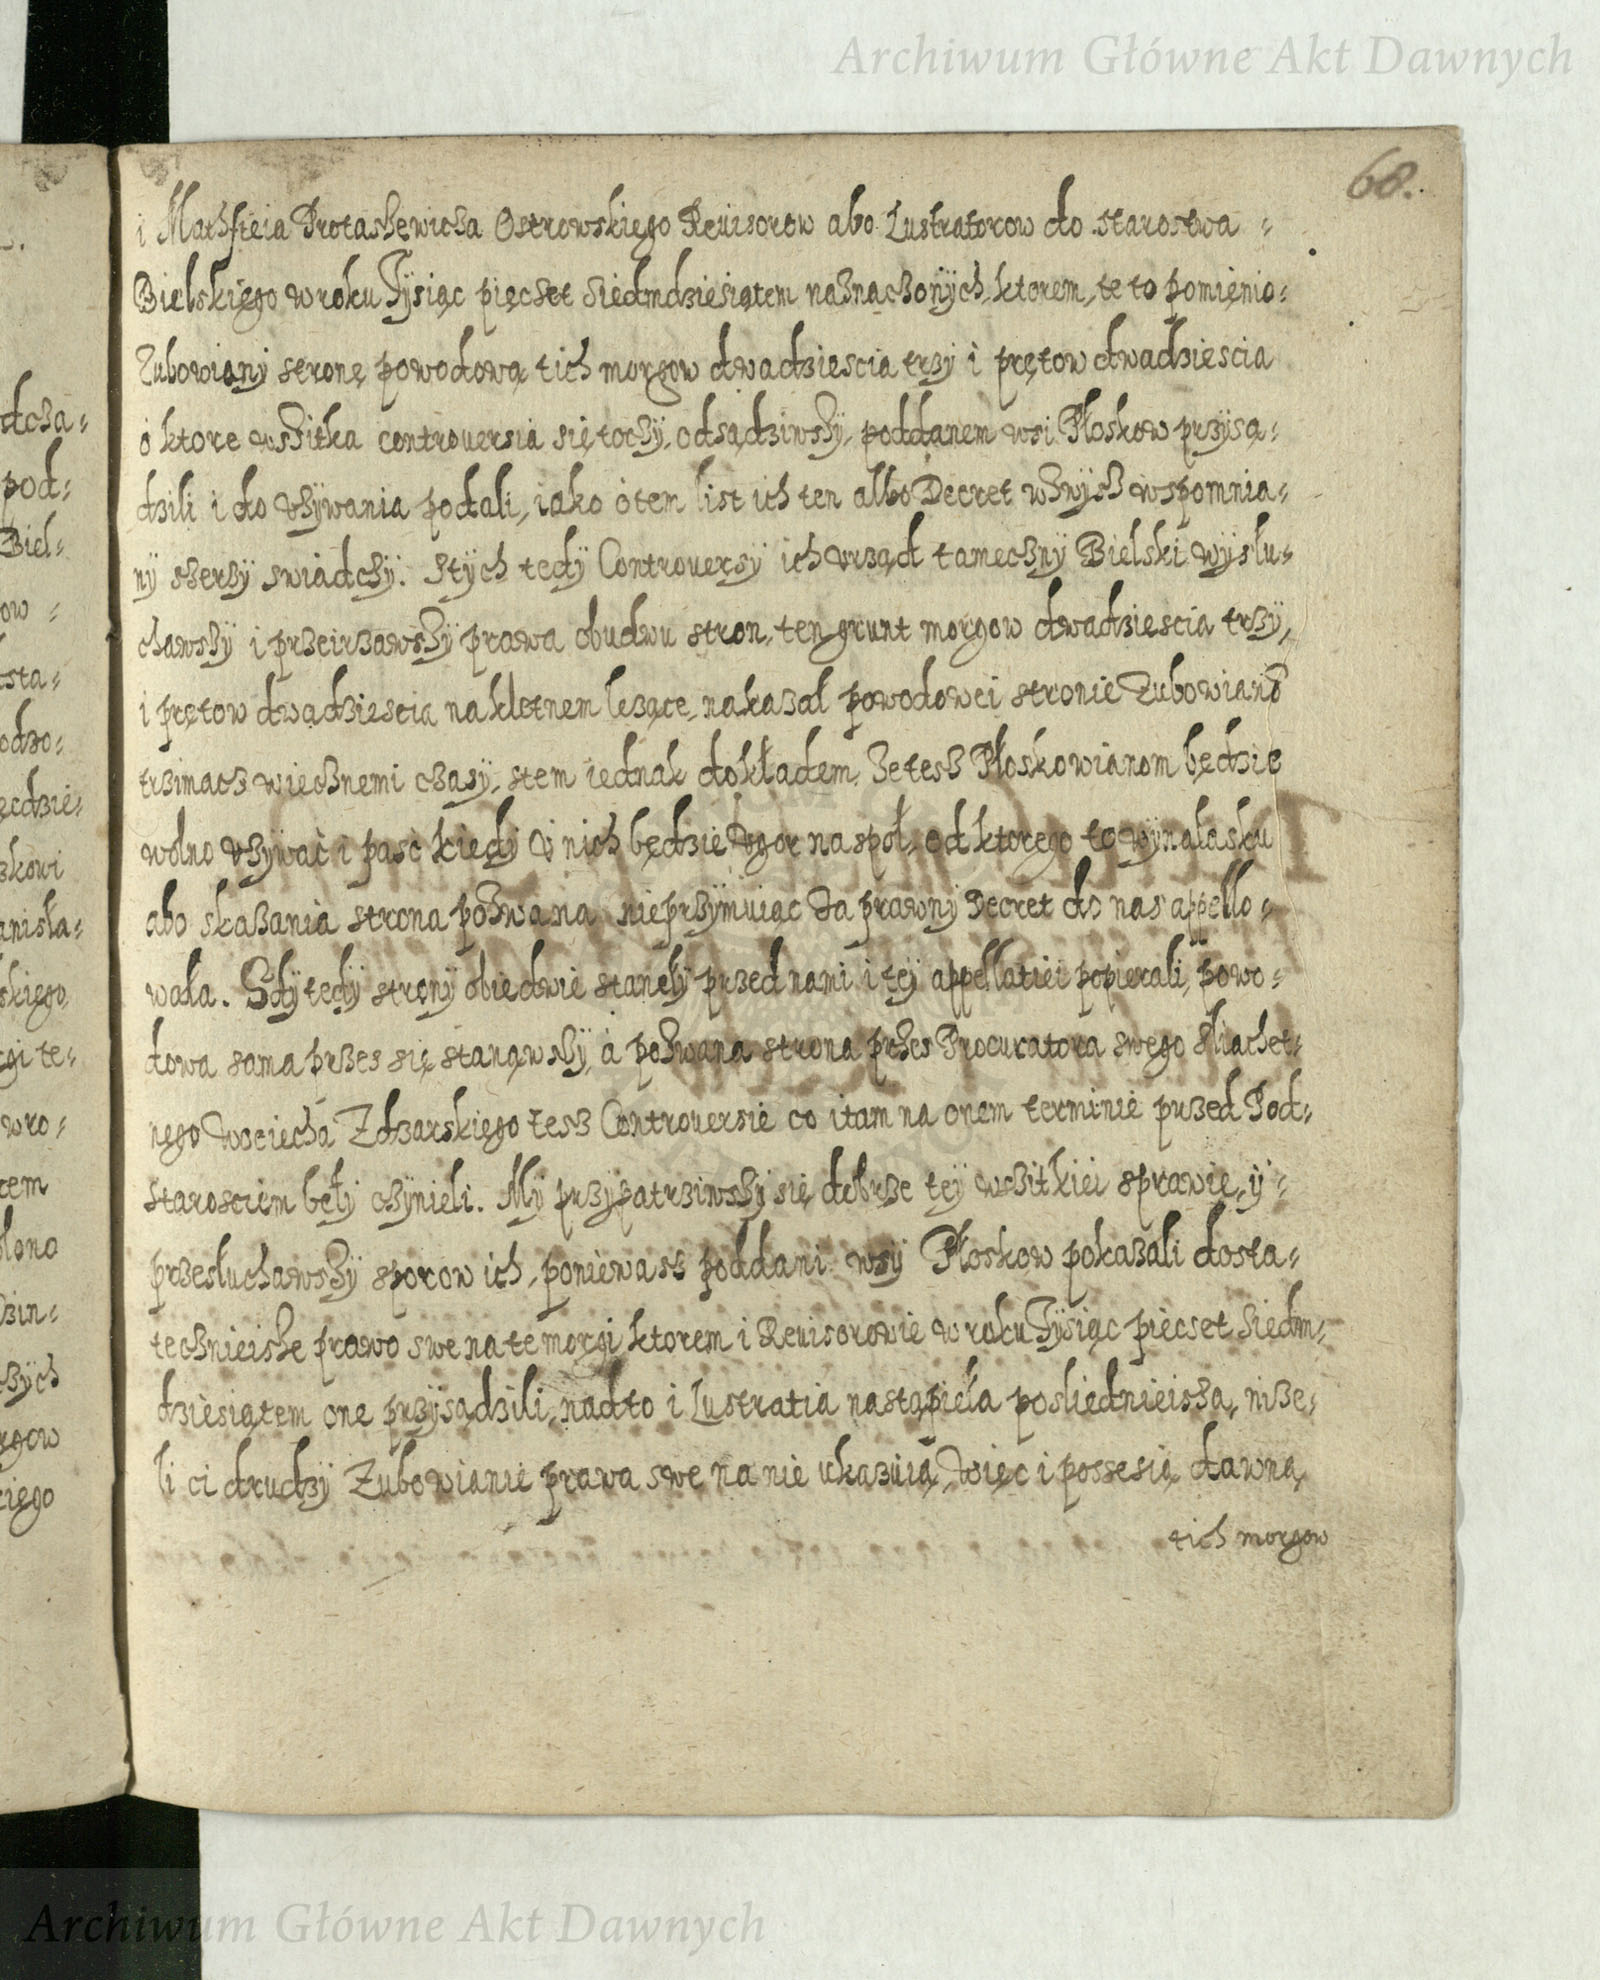 Archiwum Główne Akt Dawnych
68.
i Mathfieia Protaszewicza Ostrowskiego Reuisorow abo Lustratorow do starostwa =
Bielskięgo w roku Tysiąc pięcset siedmdziesiątem naznaczonych, ktorem, te to pomięnio=
Zubowiany stronę powodową tich morgow dwadziescia trzy i prętow dwadziescia
o ktore wszitka controuersia się toczy, odsądziwszy, poddanem wsi Płoskow przysą=
dzili i do vzywania podali, iako o tem list ich ten albo Decret wzwysz wspomnia=
ny szerzy swiadczy. Stych tedy Controuersy ich vrząd tameczny Bielski wysłu=
chawszy i przeirzawszy prawa obudwu stron, ten grunt morgow dwadziescia trzy,
i prętow dwadziescia na kletnem lezące, nakazał powodowei stronie Zubowianō
trzimacz wiecznemi czasy, stem iednak dokładem, ze tesz Płoskowianom będzie
wolno vzywać i pasc kiedy v nich będzie vgor na społ, od ktorego to wynalasku
abo skazania strona pozwana nieprzymuiąc za prawny Decret do nas appello=
wała. Gdy tedy strony obiedwie stanely przed nami i tey appellatiei popierali, powo=
dowa sama przes się stanąwszy, a pozwana strona przes Procuratora swego sliachet=
nego Woeiecha Zdzarskięgo tesz Controuersie co i tam na onem terminie przed Pod=
starosciem beły czynieli. My przypatrziwszy się dobrze tey wszitkiei sprawie, y =
przesłuchawszy sporow ich, poniewasz poddani wsy Płoskow pokazali dosta=
tecznieisze prawo swe na te morgi ktorem i Reuisorowie w roku Tysiąc pięcset siedm=
dziesiątem one przysądzili, nadto i Lustratia nastąpieła posliednieisza, nize=
li ci drudzy Zubowianie prawa swe na nie ukazuią, Więc i possesią dawną
tich morgow
dcza=
pod=
Biel=
ow =
sta=
odzo=
ędzie=
zkowi
anisła=
skięgo
gi te=
wro=
tem
łono
zin=
zych
rgow
kięgo
Archiwum Główne Akt Dawnych